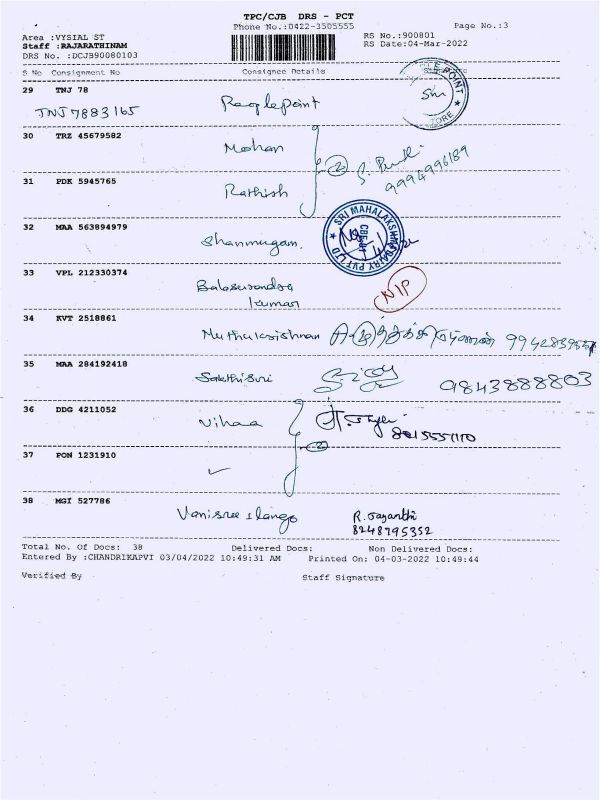 TPC/CJB DRS - PCT
Phone No.:0422-3505555
Page No.:3
Area :VYSIAL ST
RS No.:900801
Staff :RAJARATHINAM
RS Date:04-Mar-2022
DRS No. :DCJB90080103
S No Consignment No Consignee Details
29 TNJ 78
TNJ7883165 Peoplepoint
30 TRZ 45679582
Mohan
2
9994996189
31 PDK 5945765
Rathish
32 MAA 563894979
Shanmugam.
SRI MAHALAKSHMI DAIRY PVT LTD
33 VPL 212330374
Balasurendra
kumar
NIP
34 KVT 2518861
Muthukrishnan
35 MAA 284192418
Sakthisri 9843888803
36 DDG 4211052
Vihaa
8015551170
2
37 PON 1231910
38 MGI 527786
Vanisree Ilango R. Jayanthi
8248795352
Total No. Of Docs: 38 Delivered Docs: Non Delivered Docs:
Entered By :CHANDRIKAPVI 03/04/2022 10:49:31 AM Printed On: 04-03-2022 10:49:44
Verified By Staff Signature